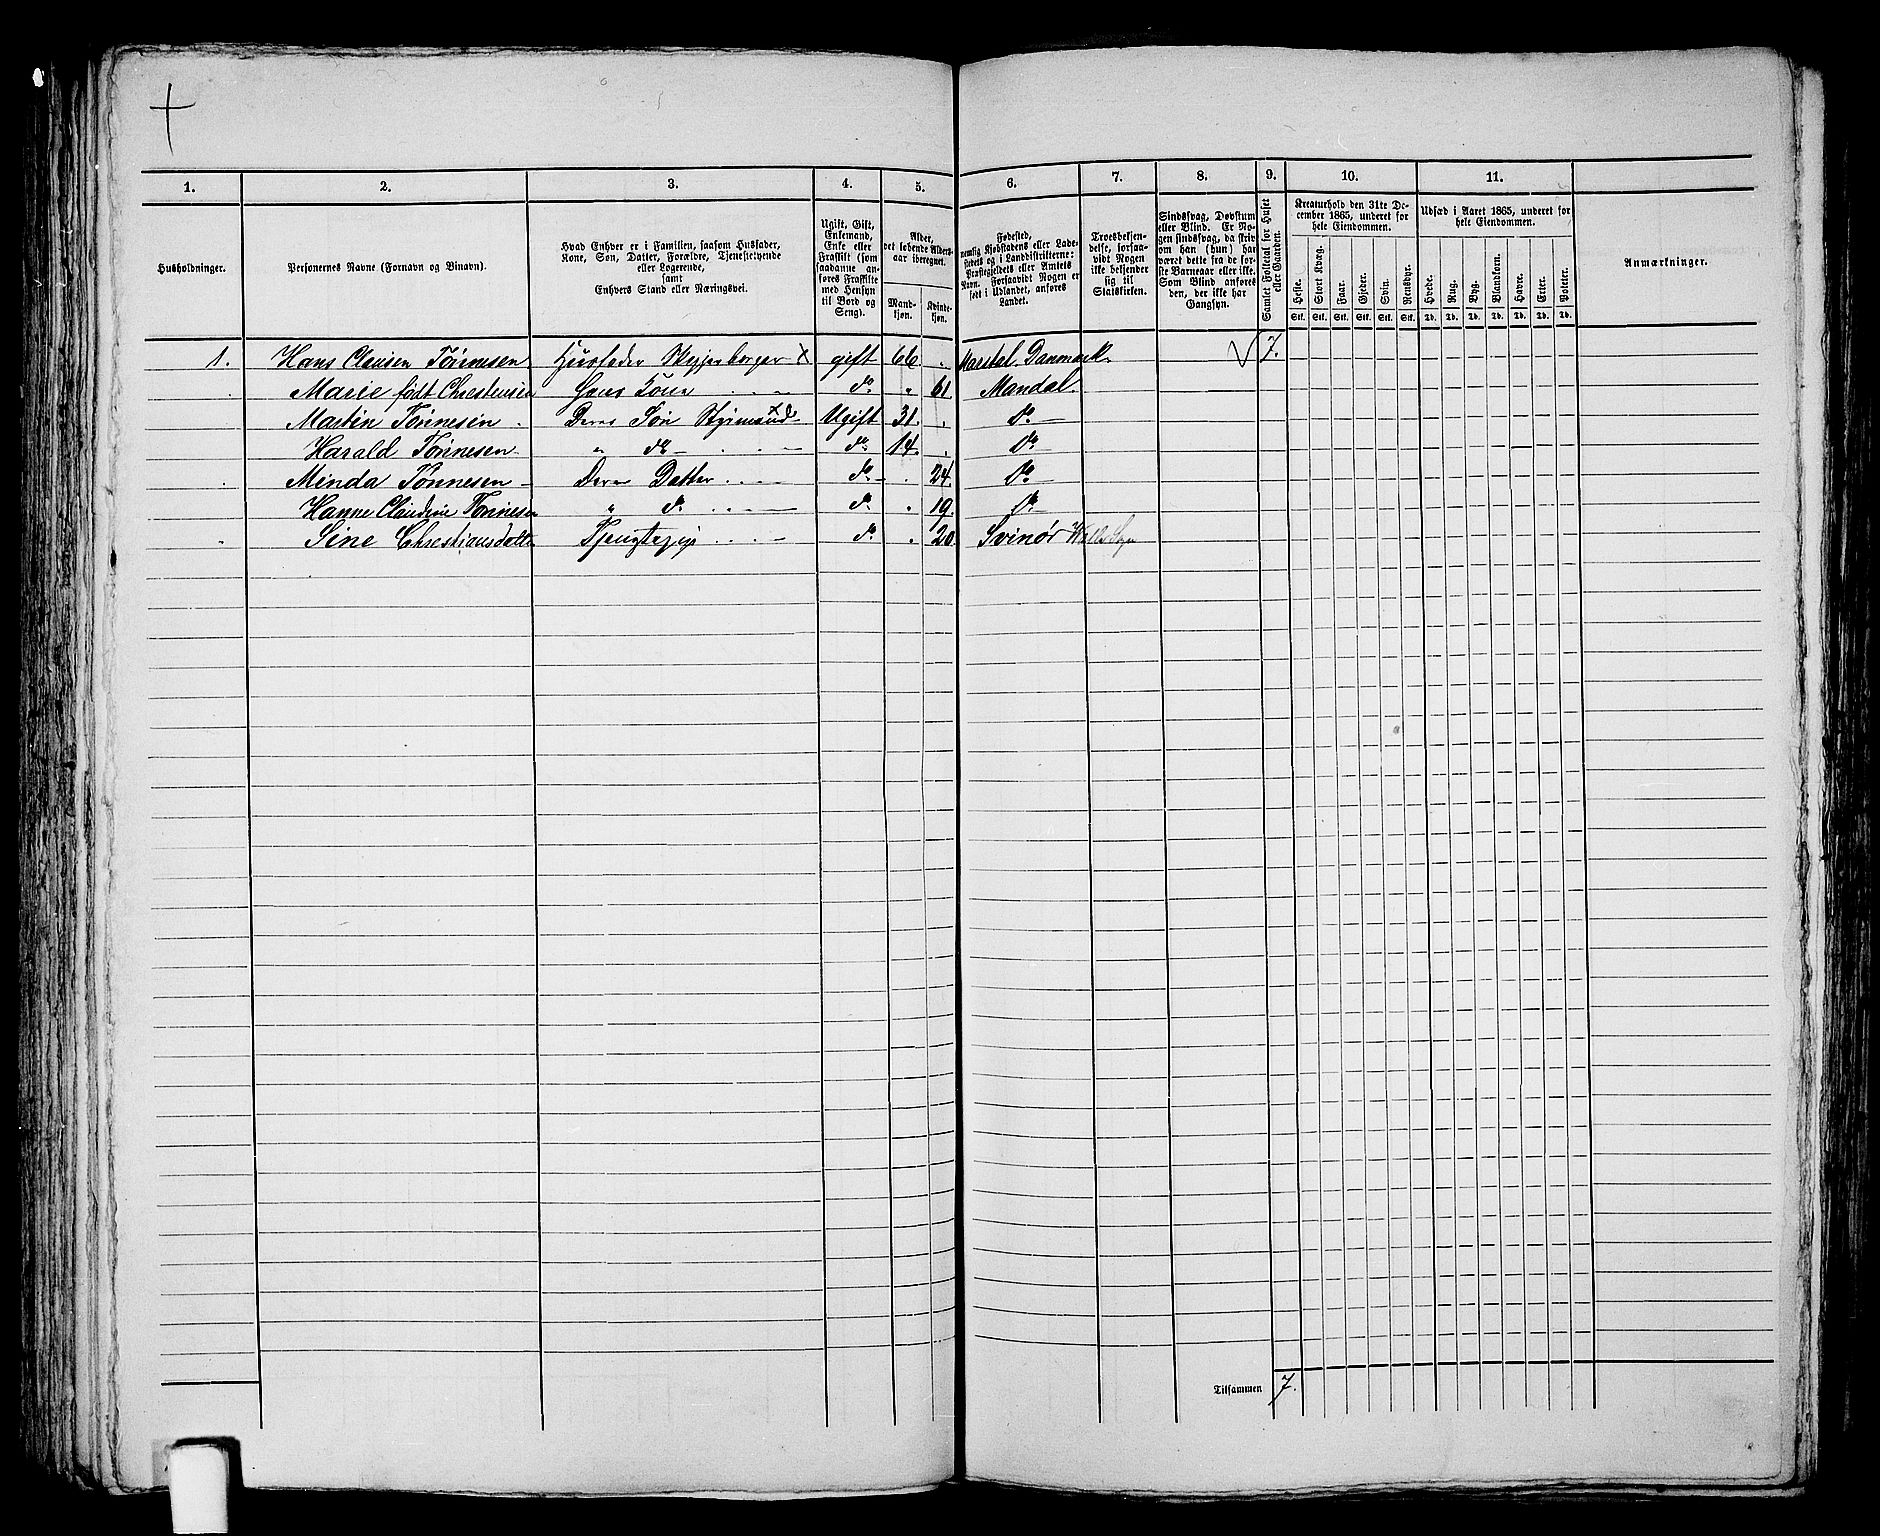 1. 2. 3. 4. 5. 6. 7. 8. 9. 10. 11.
Husholdninger.
Personernes Navne (Fornavn og Binavn).
Hvad Enhver er i Familien, saasom Husfader,
Kone, Søn, Datter, Forældre, Tjenestetyende
eller Logerende,
samt
Enhvers Stand eller Næringsvei.
Ugift, Gift,
Enkemand,
Enke eller
Fraskilt (som
saadanne an-
føres Fraskilte
med Hensyn
til Bord og
Seng).
Alder,
det løbende Alders-
aar iberegnet.
Mand-
kjøn.
Kvinde-
kjøn.
Fødested,
nemlig Kjøbstadens eller Lade-
stedets og i Landdistrikterne:
Præstegjeldets eller Amtets
Navn. Forsaavidt Nogen er
født i Udlandet, anføres
Landet.
Troesbekjen-
delse, forsaa-
vidt Nogen
ikke bekjender
sig til
Statskirken.
Sindssvag, Døvstum
eller Blind. Er No-
gen sindssvag, da skriv
om han (hun) har
været dette fra de før-
ste Barneaar eller ikke.
Som Blind anføres
den, der ikke har
Gangsyn.
Samlet Folketal for Huset
eller Gaarden.
Kreaturhold den 31te De-
cember 1865, underet for
hele Eiendommen.
Heste. Stort Kvæg. Faar. Gjeder. Svin. Rensdyr.
Stk. Stk. Stk. Stk. Stk. Stk.
Udsæd i Aaret 1865, underet for
hele Eiendommen.
Hvede. Rug. Byg. Blandkorn. Havre. Erter. Poteter.
Td. Td. Td. Td. Td. Td. Td.
Anmærkninger.
1. Hans Clausen Tönnesen Husfader Skipsborger x gift 66 . Marstal Danmark 7.
Marie född Chrestensen Hans Kone do " 61 Mandal
Martin Tönnesen Deres Søn Styrmand Ugift 31 . do
Harald Tönnesen " do do 14 . do
Minda Tönnesen Deres Datter do . 24 do
Hanne Claudine Tönnesen " do do " 19 do
Sine Chrestiansdatter Tjenstepige do " 20 Svinör
Tilsammen 7.